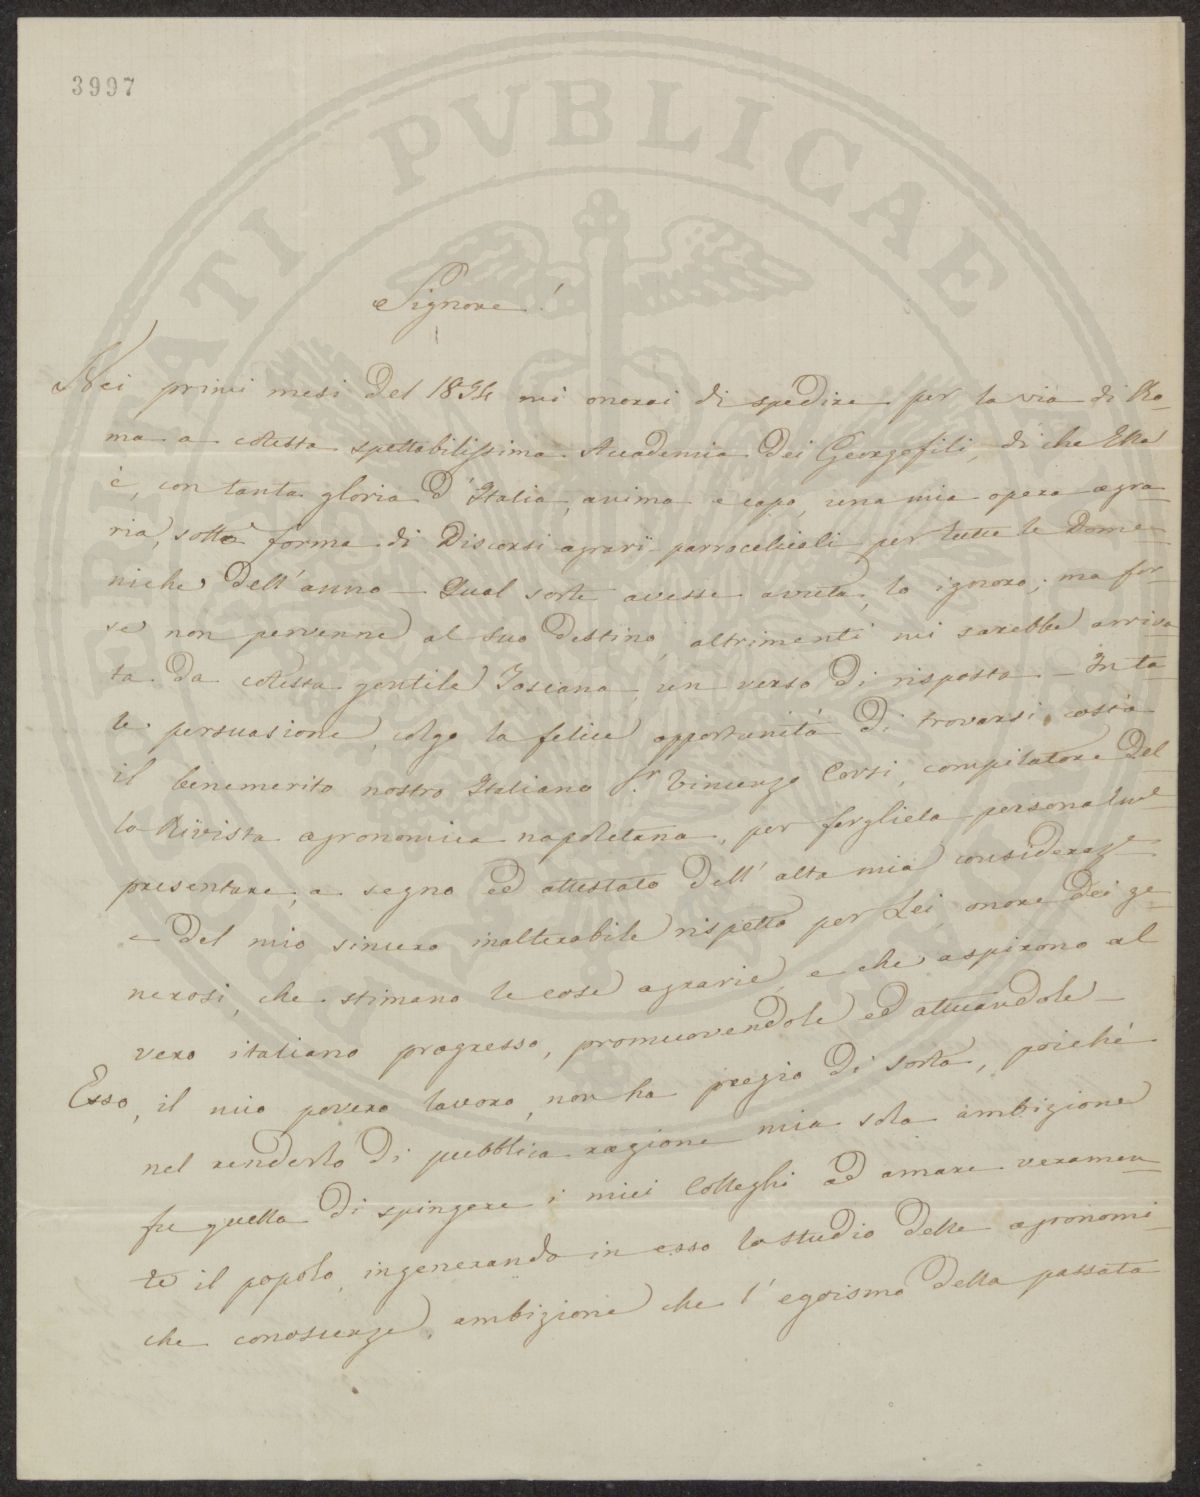 3997
PROSPERITATI PVBLICAE AVGENDAE
Signore!
Nei primi mesi del 1854 mi onorai di spedire per la via di Ro-
ma a cotesta spettabilissima Accademia dei Georgofili, di che Ella
è, con tanta gloria d'Italia, anima e capo, una mia opera agra-
ria, sotto forma di Discorsi agrarî-parrocchiali per tutte le Dome-
niche dell'anno — Qual sorte avesse avuta, lo ignoro; ma for-
se non pervenne al suo destino, altrimenti mi sarebbe arriva-
ta da cotesta gentile Toscana, un verso di risposta. — In ta-
le persuasione, colgo la felice opportunità di trovarsi costà
il benemerito nostro Italiano Sr. Vincenzo Corsi, compilatore del-
la Rivista agronomica napoletana, per fargliela personalme
presentare; a segno ed attestato dell'alta mia consideraze
e del mio sincero inalterabile rispetto per Lei, onore dei ge-
nerosi, che stimano le cose agrarie, e che aspirono al
vero italiano progresso, promuovendole ed attuandole —
Esso, il mio povero lavoro, non ha pregio di sorta, poichè
nel renderlo di pubblica ragione mia sola ambizione
fu quella di spingere i miei Colleghi ad amare veramen-
te il popolo, ingenerando in esso lo studio delle agronomi-
che conoscenze, ambizione che l'egoismo della passata